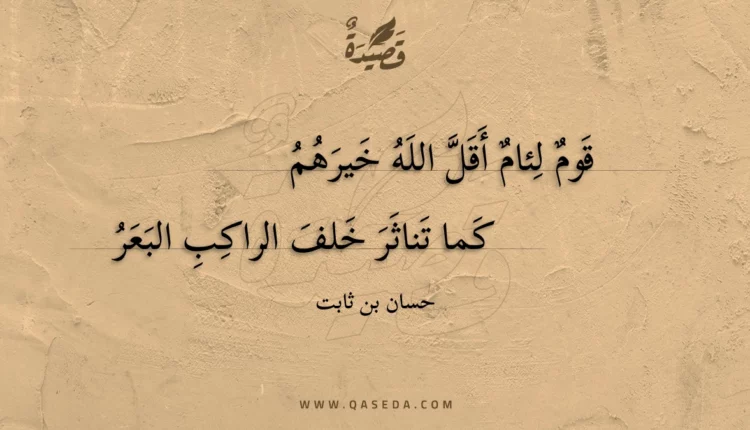 قَصِيدَةٌ
قَومٌ لِئامٌ أَقَلَّ اللَهُ خَيرَهُمُ
كَما تَناثَرَ خَلفَ الراكِبِ البَعَرُ
حسان بن ثابت
WWW.QASEDA.COM